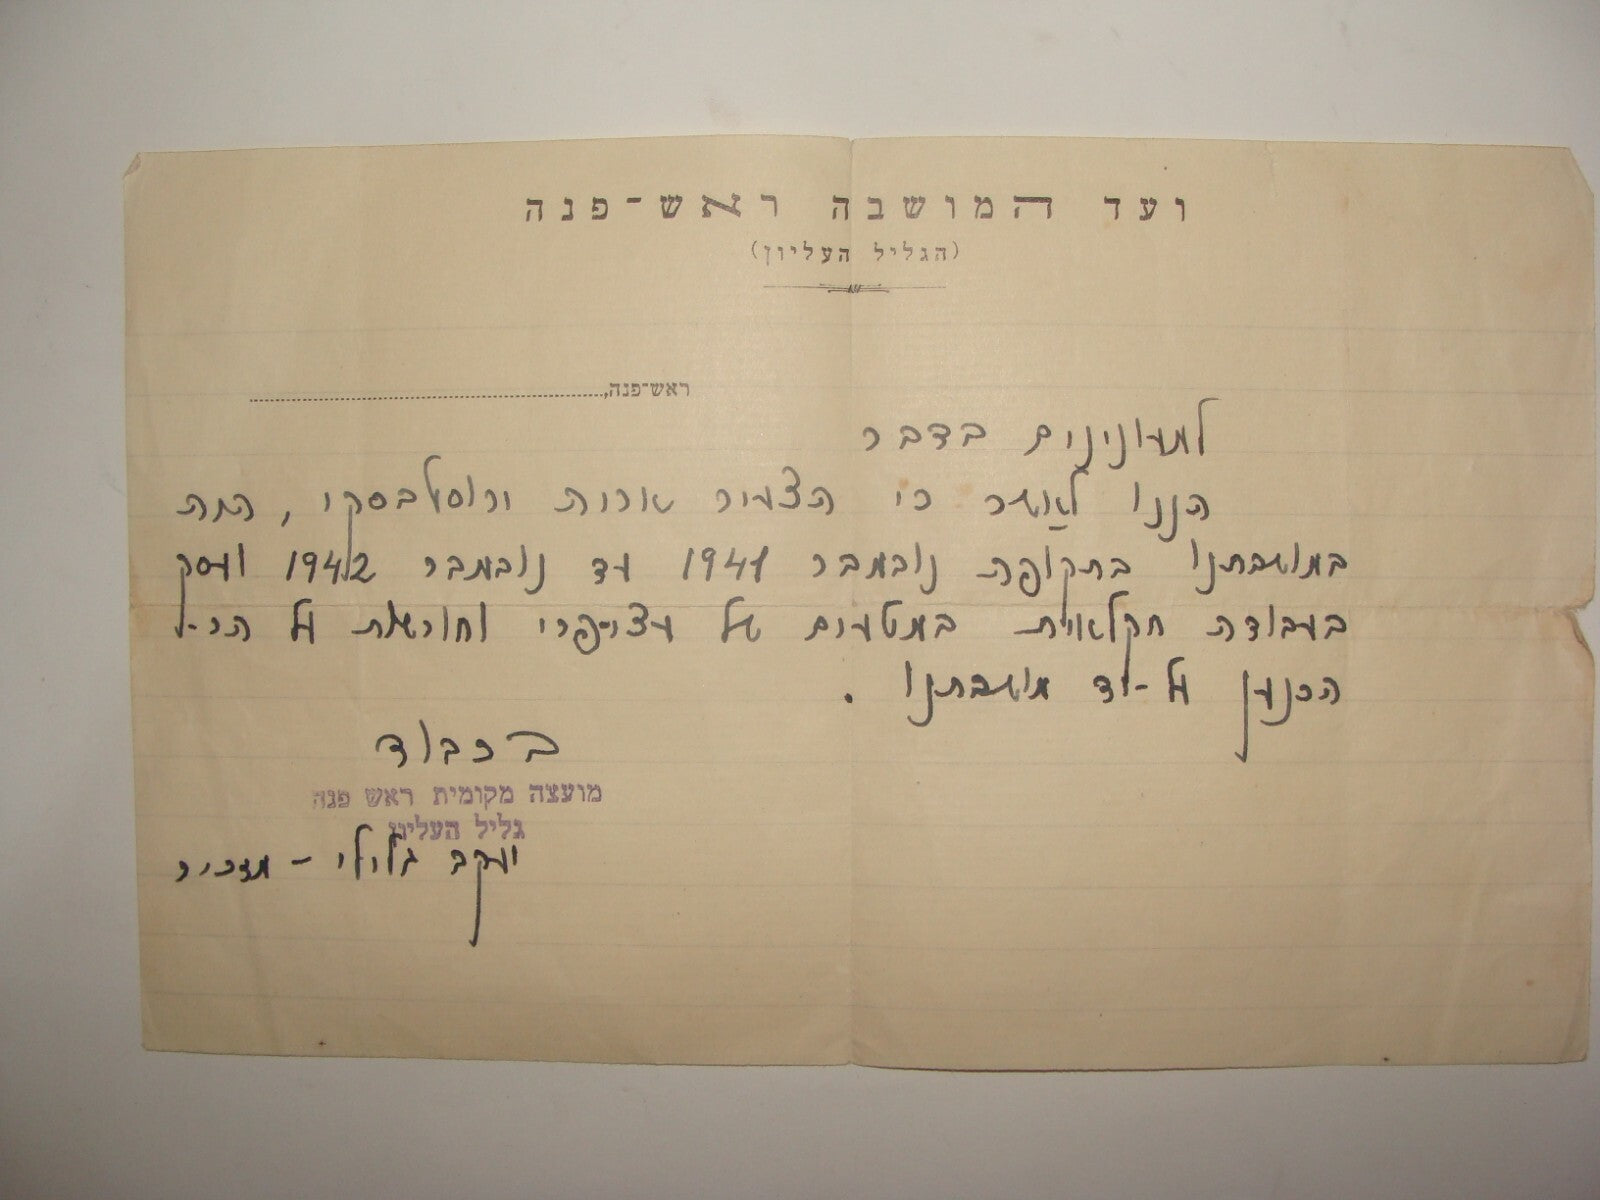 ועד המושבה ראש-פנה
(הגליל העליון)
ראש-פנה,
למעונינים בדבר
הננו לאשר כי הצעיר ירוסלבסקי, היה
במושבתנו בתקופת נובמבר 1941 עד נובמבר 1942 ועסק
בעבודה חקלאית במטעים של עצי-פרי וחורשות על הר-
הכנען על-יד מושבתנו.
בכבוד
מועצה מקומית ראש פנה
גליל העליון
יעקב גלילי - מזכיר